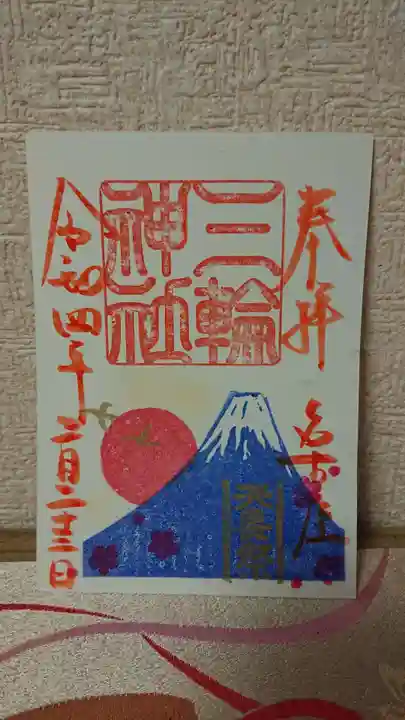 奉拝
名古屋
三輪
神社
令和四年二月二十三日